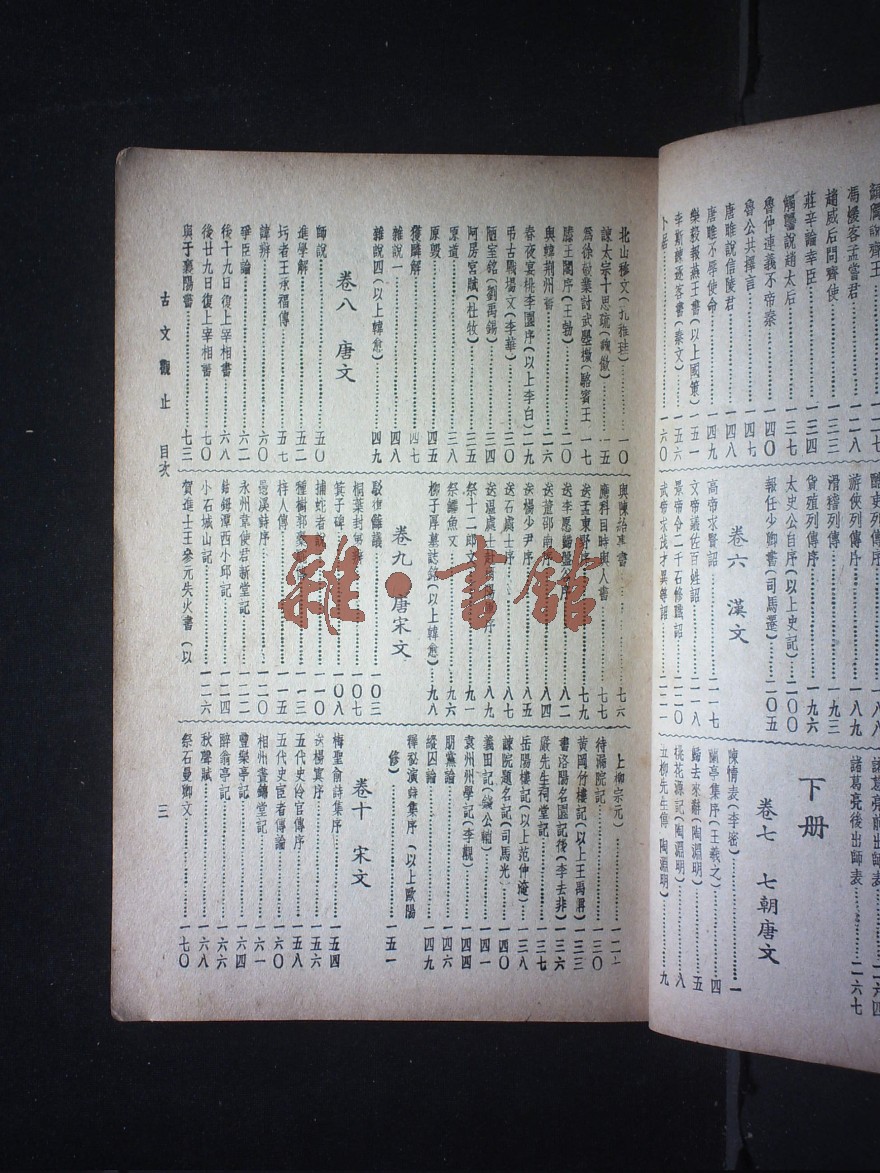 趙威后問齊使……一三三
莊辛論幸臣……一三四
觸讋說趙太后……一三七
魯仲連義不帝秦……一四〇
魯公共擇言
唐雎說信陵君……一四八
唐雎不辱使命……一四九
樂毅報燕王書(以上國策)……一五一
李斯諫逐客書(秦文)……一五六
卜居……一六〇
游俠列傳序……一八九
滑稽列傳序……一九三
貨殖列傳序……一九六
太史公自序(以上史記)……二〇〇
報任少卿書(司馬遷)……二〇五
卷六 漢文
高帝求賢詔……二一七
文帝議佐百姓詔……二一八
景帝令二千石修職詔……二二〇
武帝求茂才異等詔……二二一
諸葛亮前出師表……二六四
諸葛亮後出師表……二六七
下册
卷七 七朝唐文
陳情表(李密)……一
蘭亭集序(王羲之)……四
歸去來辭(陶淵明)……五
桃花源記(陶淵明)……八
五柳先生傳(陶淵明)……九
北山移文(孔稚珪)……一〇
諫太宗十思疏(魏徵)……一五
爲徐敬業討武曌檄(駱賓王……一七
滕王閣序(王勃)……二〇
與韓荆州書……二六
春夜宴桃李園序(以上李白)二九
弔古戰場文(李華)……三〇
陋室銘(劉禹錫)……三三
阿房宮賦(杜牧)……三五
原道……三八
原毀……四五
獲麟解……四七
雜說一……四八
雜說四(以上韓愈)……四九
卷八 唐文
師說……五〇
進學解……五二
圬者王承福傳……五七
諱辯……六〇
爭臣論……六二
後十九日復上宰相書……六八
後廿九日復上宰相書……七〇
與于襄陽書……七三
與陳給事書……七六
應科目時與人書……七七
送孟東野序……七九
送李愿歸盤谷序……八二
送董邵南序……八四
送楊少尹序……八五
送石處士序……八七
送溫處士赴河陽軍序……八九
祭十二郎文……九一
祭鱷魚文……九六
柳子厚墓誌銘(以上韓愈)……九八
卷九 唐宋文
駁復讎議……一〇三
桐葉封弟辨……一〇七
箕子碑……一〇八
捕蛇者說……一一〇
種樹郭橐駝傳……一一三
梓人傳……一一五
愚溪詩序……一二〇
永州韋使君新堂記……一二二
鈷鉧潭西小邱記……一二四
小石城山記……一二六
賀進士王參元失火書(以
上柳宗元)……一二
待漏院記……一三〇
黃岡竹樓記(以上王禹偁)一三三
書洛陽名園記後(李去非)一三六
嚴先生祠堂記……一三七
岳陽樓記(以上范仲淹)……一三八
諫院題名記(司馬光)……一四〇
義田記(錢公輔)……一四一
袁州州學記(李覯)……一四四
朋黨論……一四六
縱囚論……一四九
釋祕演詩集序(以上歐陽
修)……一五一
卷十 宋文
梅聖俞詩集序……一五四
送楊寘序……一五六
五代史伶官傳序……一五八
五代史宦者傳論……一六〇
相州晝錦堂記……一六一
豐樂亭記……一六四
醉翁亭記……一六六
秋聲賦……一六八
祭石曼卿文……一七〇
古文觀止 目次
三
雜·書館